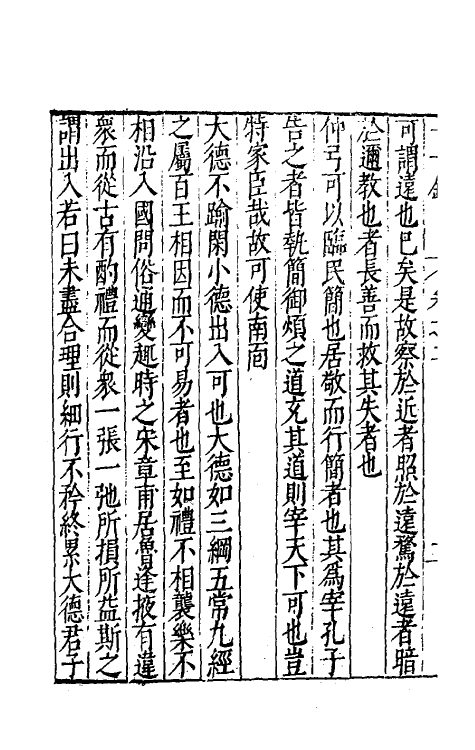 可謂遠也巳矣是故察於近者照於遠騖於遠者暗
於邇教也者長善而救其失者也
仲弓可以臨民簡也居敬而行簡者也其爲宰孔子
告之者皆執簡御煩之道充其道則宰天下可也豈
特家臣哉故可使南面
大德不踰閑小德出入可也大德如三綱五常九經
之屬百王相因而不可易者也至如禮不相襲樂不
相沿入國問俗通變趣時之宋章甫居魯逢掖有違
衆而從古有酌禮而從衆一張一弛所損所益斯之
謂出入若曰未盡合理則細行不矜終累大德君子